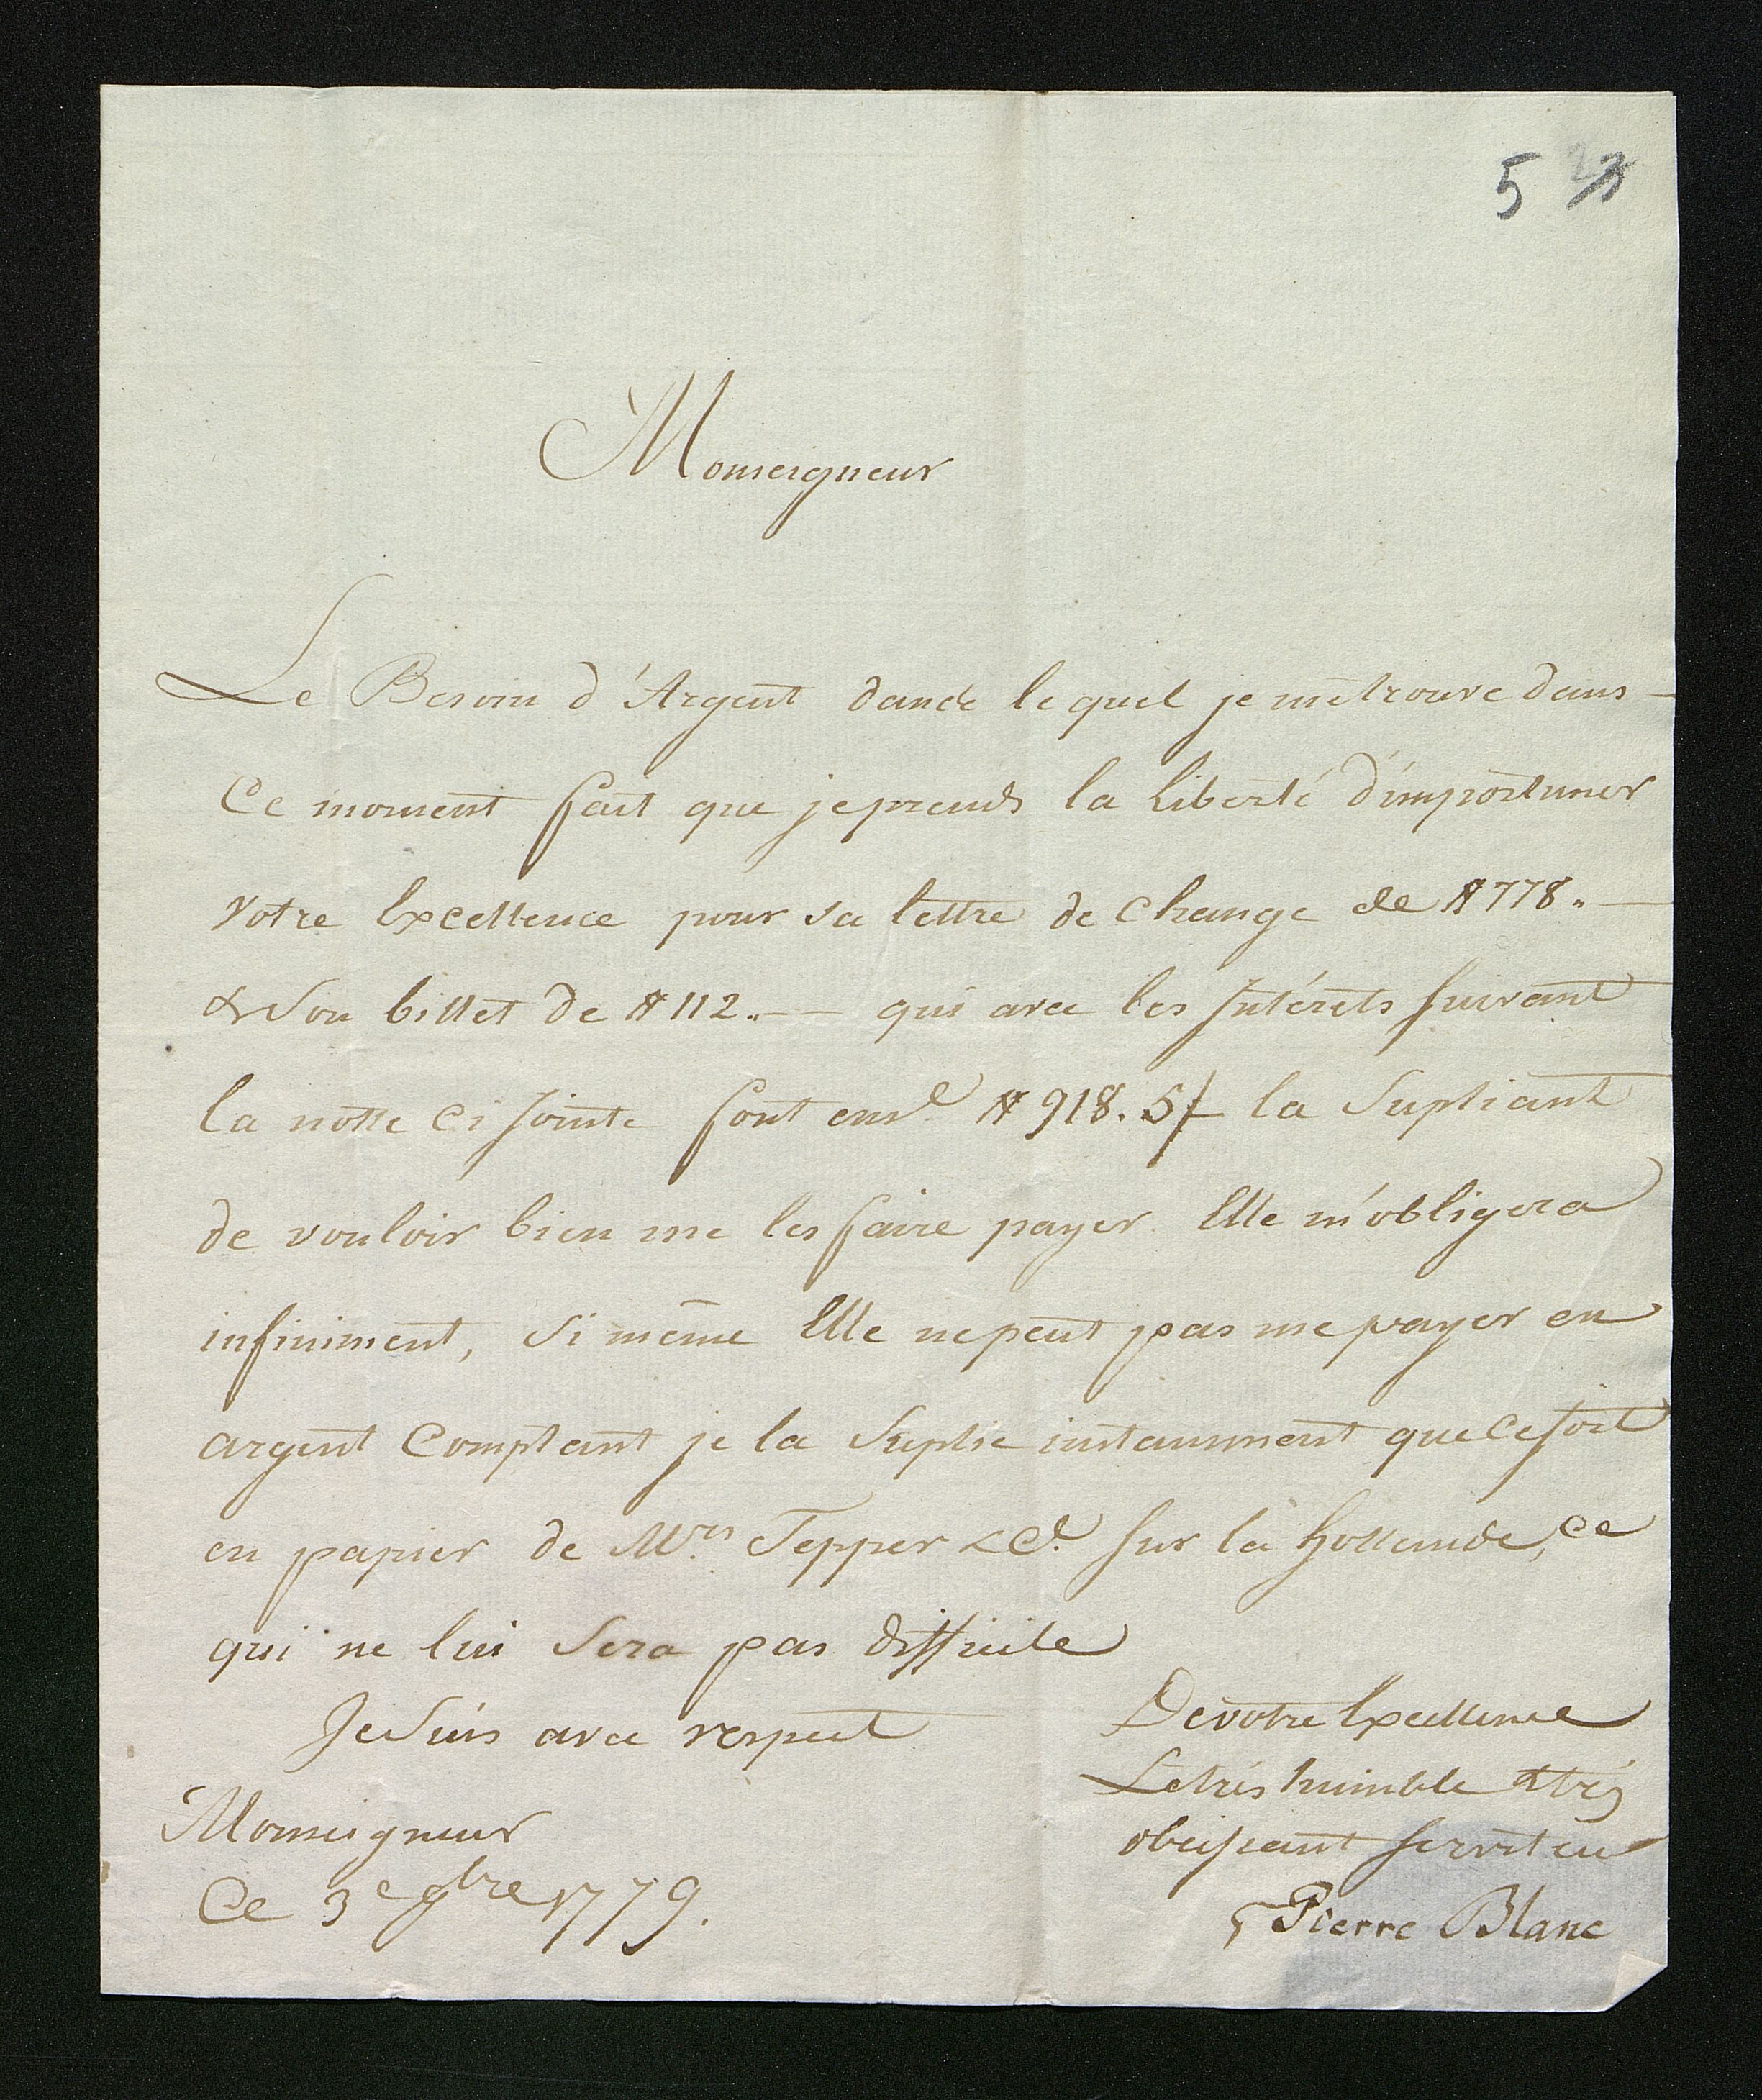 5
Monseigneur
Le Besoin d'Argent dans le quel je me trouve dans
Ce moment fait que je prends la Liberté d'importuner
Votre Excellence pour sa lettre de Change de # 778.. —
& Son billet de # 112.. — qui avec les Intérêts suivant
la notte Ci Jointe font ens.e # 918. 5f la Supliant
de vouloir bien me les faire payer Elle m'obligera
infiniment, Si même Elle ne peut pas me payer en
argent Comptant je la Suplie instamment que ce soit
en papier de M.rs Tepper & C.e sur la Hollande, Ce
qui ne lui Sera pas difficile
Je Suis avec respect
De votre Excellence
Le trés humble & trés
obeissant serviteur
Monseigneur
Ce 3e 9bre 1779.
Pierre Blanc